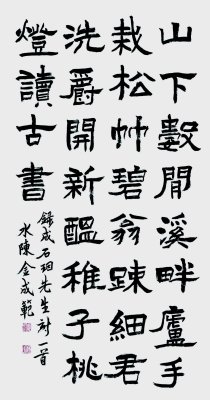 山下數閒溪畔廬手
栽松竹碧翁踈細君
洗爵開新醞稚子挑
燈讀古書
錄成石珊先生詩一首
水陳金成範